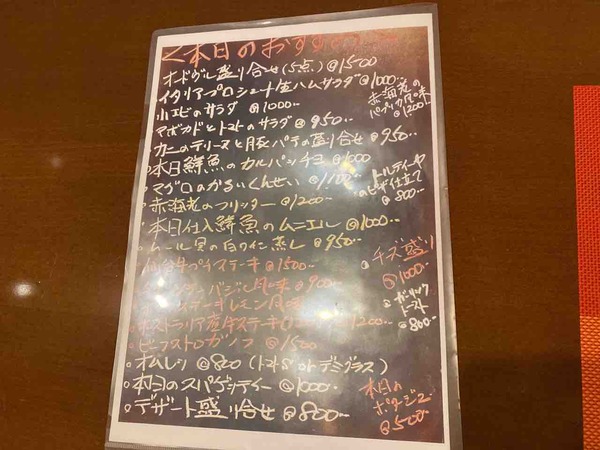 <本日のおすすめ
オードヴル盛り合せ(5点)@1500
イタリアプロシュート生ハムサラダ@1000..
小エビのサラダ @1000..
アボカドとトマトのサラダ@950..
カニのテリーヌと豚パテの盛り合せ@950..
本日鮮魚のカルパッチョ@1000
マグロのかるいくんせい@1100..
赤海老のフリッター@1200..
本日仕入鮮魚のムニエル@1000..
ムール貝の白ワイン蒸し@950..
仙台牛プチステーキ@1500..
バジル風味@900..
レモン風味
オーストラリア産牛ステーキ 1200..
ビーフストロガノフ@1500
オムレツ@800(トマトorデミグラス)
本日のスパゲッティー@1000..
デザート盛り合せ@800..
赤海老の
パプリカ風味
@1200
トルティーヤ
のピザ仕立て
@800..
チーズ盛り
@1000
ガーリック
トースト
@800..
本日の
ポタージュ
@500